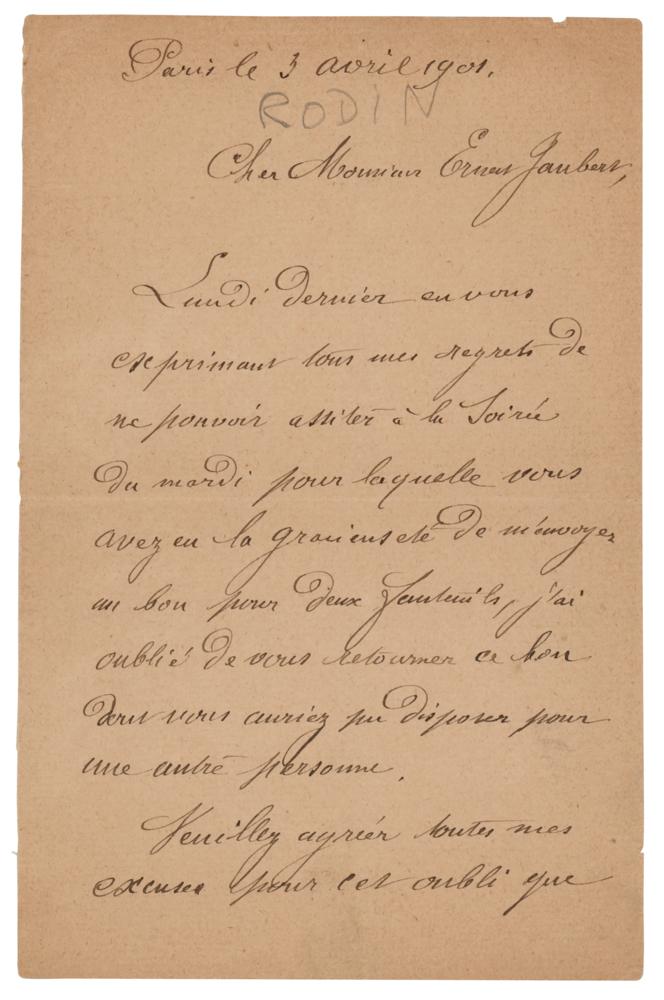 Paris le 3 avril 1901.
RODIN
Cher Monsieur Ernest Jaubert,
Lundi dernier en vous
exprimant tous mes regrets de
ne pouvoir assiter à la Soirée
du mardi pour laquelle vous
avez eu la gracieuseté de m'envoyez
un bon pour deux fauteuils, j'ai
oublié de vous retourner ce bon
dont vous auriez pu disposer pour
une autre personne.
Veuillez agréér toutes mes
excuses pour cet oubli que